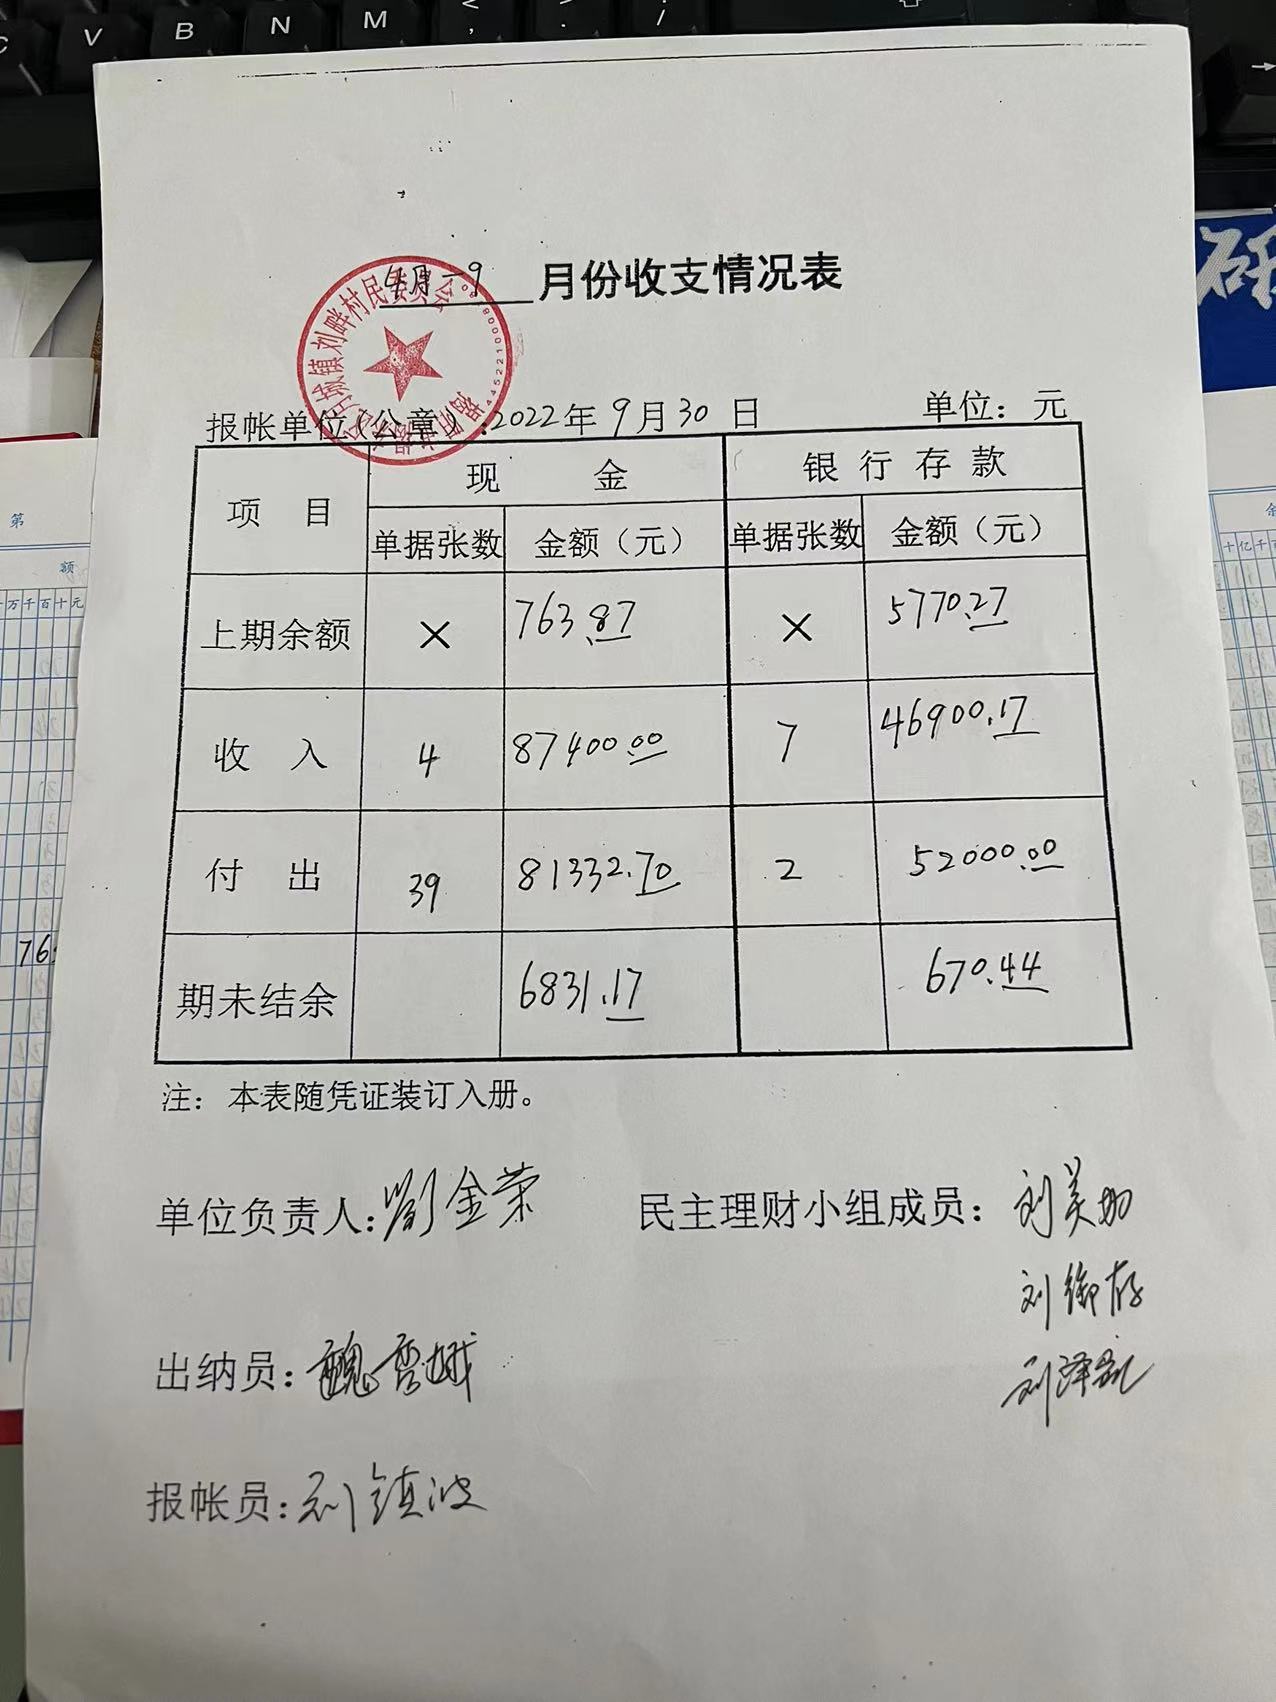 4月-9 月份收支情况表
报帐单位(公章):2022年9月30日 单位：元
项 目 现 金 银行存款
单据张数 金额（元） 单据张数 金额（元）
上期余额 × 763.87 × 5770.27
收 入 4 87400.00 7 46900.17
付 出 39 81332.70 2 52000.00
期未结余 6831.17 670.44
注：本表随凭证装订入册。
单位负责人:劉金荣 民主理财小组成员：刘美
刘 存
出纳员:魏
刘泽凯
报帐员:刘镇波
刘畔村民委员会
V B N M
76